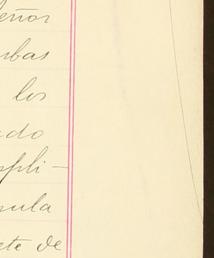 eñor
rbas
los
ado
mpli-
sula
ete de